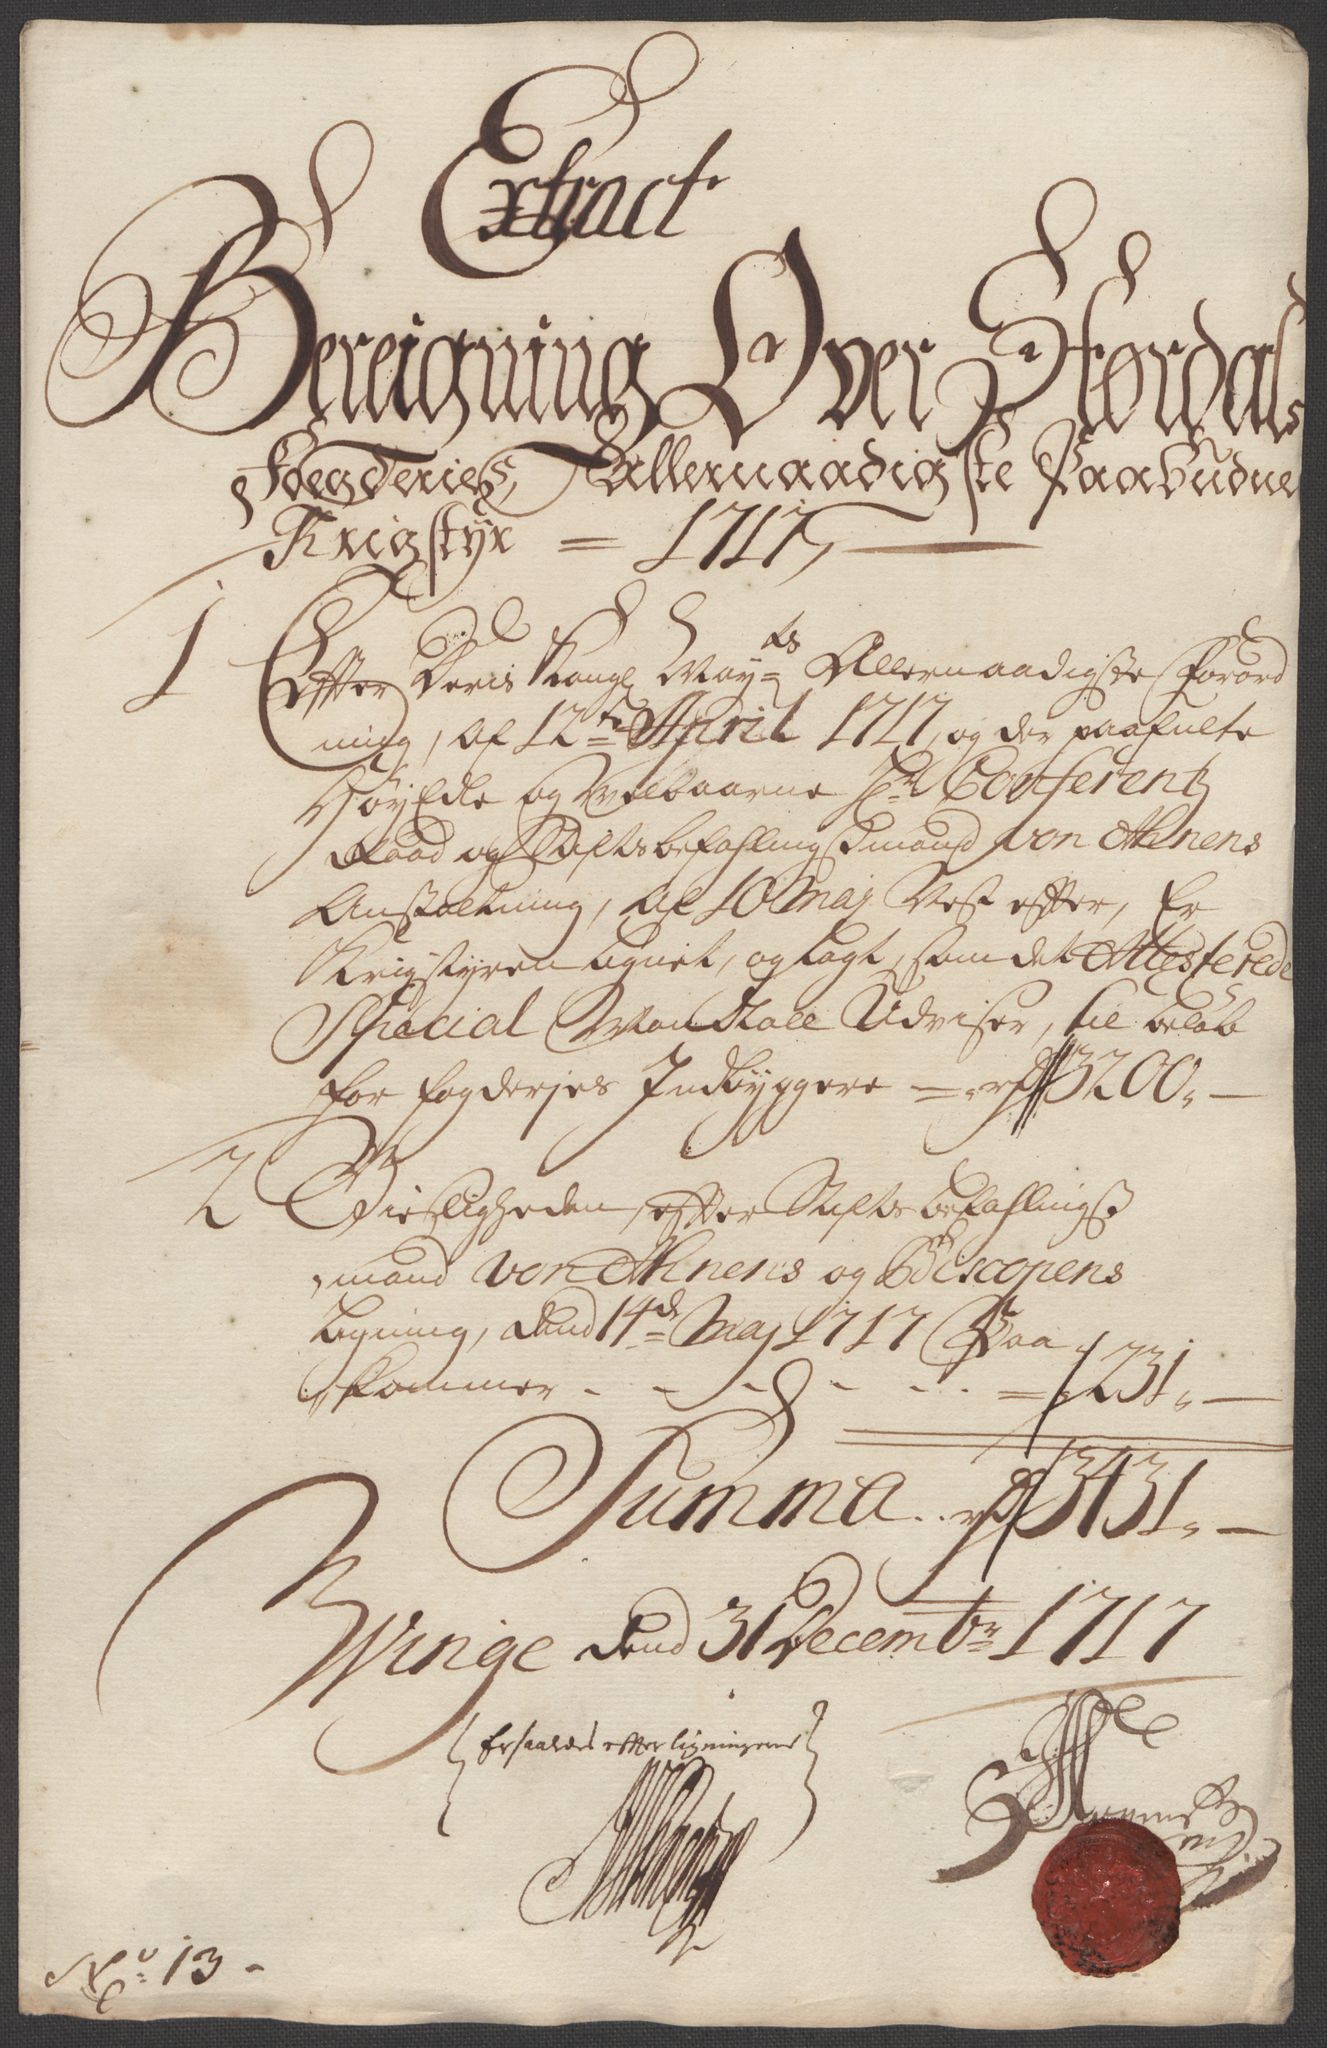 Extract
Bereigning Over Størdals
Fogderies, Allernaadigste Paabudne
Krigstyr = 1717,
1 Effter Deris Kongl May:ts Allernaadigste Forord
ning, af 12te April 1717, og der paafulte
HøyEdle og Welbaarne Hr Conferentz
Raad og Stiftsbefahlingsmand von Ahnens
Anstaltning, af 10 Maj Nest effter, Er
Krigstyren lignet, og lagt, som det Attesterede
Special Mandtall Udviser, til beløb
for fogderjes Indbyggere = rd 3200„ —
2 Giestligheden, effter Stiftsbefahlings
mand von Ahnens og Biscopens
Ligning, dend 14de Maj 1717 Paa
kommer - - - - - = 231„ —
Summa .. rd 3431„ —
Winge dend 31 Decembr 1717
effter ligningerne
No: 13 -